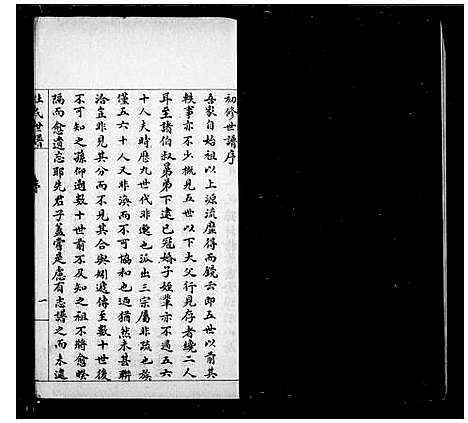 初修世譜序
吾家自始祖以上源流靡得而鏡云即五世以前其
軼事亦不少概見五世以下大父行見存者纔二人
耳至諸伯叔昆弟下逮已冠婚子姪輩亦不過五六
十人夫時歷九世代非邈也派出三宗屬非疏也族
僅五六十人又非渙而不可協和也迺猶然未甚聯
洽豈非見其分而不見其合與矧遞傳至數十世後
不可知之孫仰遡數十世前不及知之祖不將愈睽
隔而愈遺忘耶先君子蓋嘗是慮有志譜之而未逮
杜氏世譜
序
一